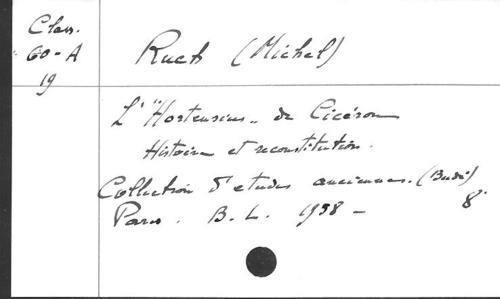 Class.
60-A
19
Ruch (Michel)
L'"Hortensius" de Cicéron
Histoire et reconstitution.
Collection d'études anciennes. (Budé)
8°
Paris. B.L. 1958 -